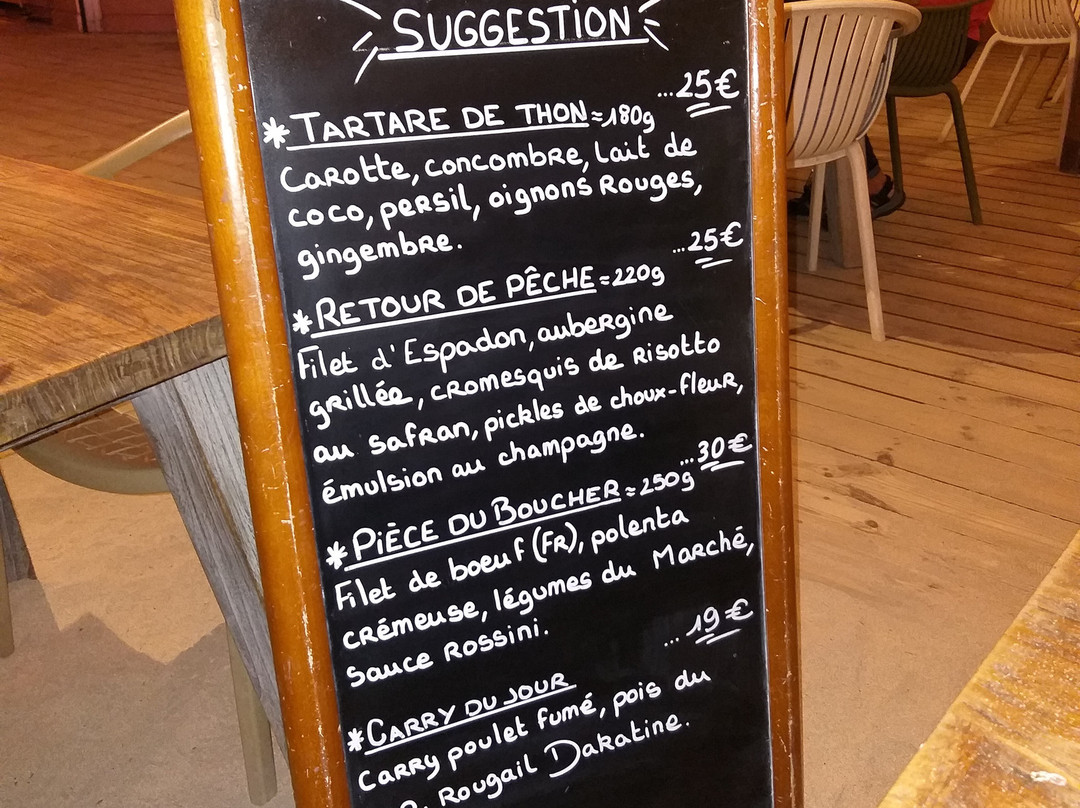 SUGGESTION
...25€
*TARTARE DE THON ≈180g
Carotte, concombre, lait de
coco, persil, oignons rouges,
gingembre.
...25€
*RETOUR DE PÊCHE ≈220g
Filet d'Espadon, aubergine
grillée, cromesquis de risotto
au safran, pickles de choux-fleur,
émulsion au champagne.
...30€
*PIÈCE DU BOUCHER ≈250g
Filet de boeuf (FR), polenta
crémeuse, légumes du Marché,
sauce Rossini.
...19€
*CARRY DU JOUR
Carry poulet fumé, pois du
Rougail Dakatine.